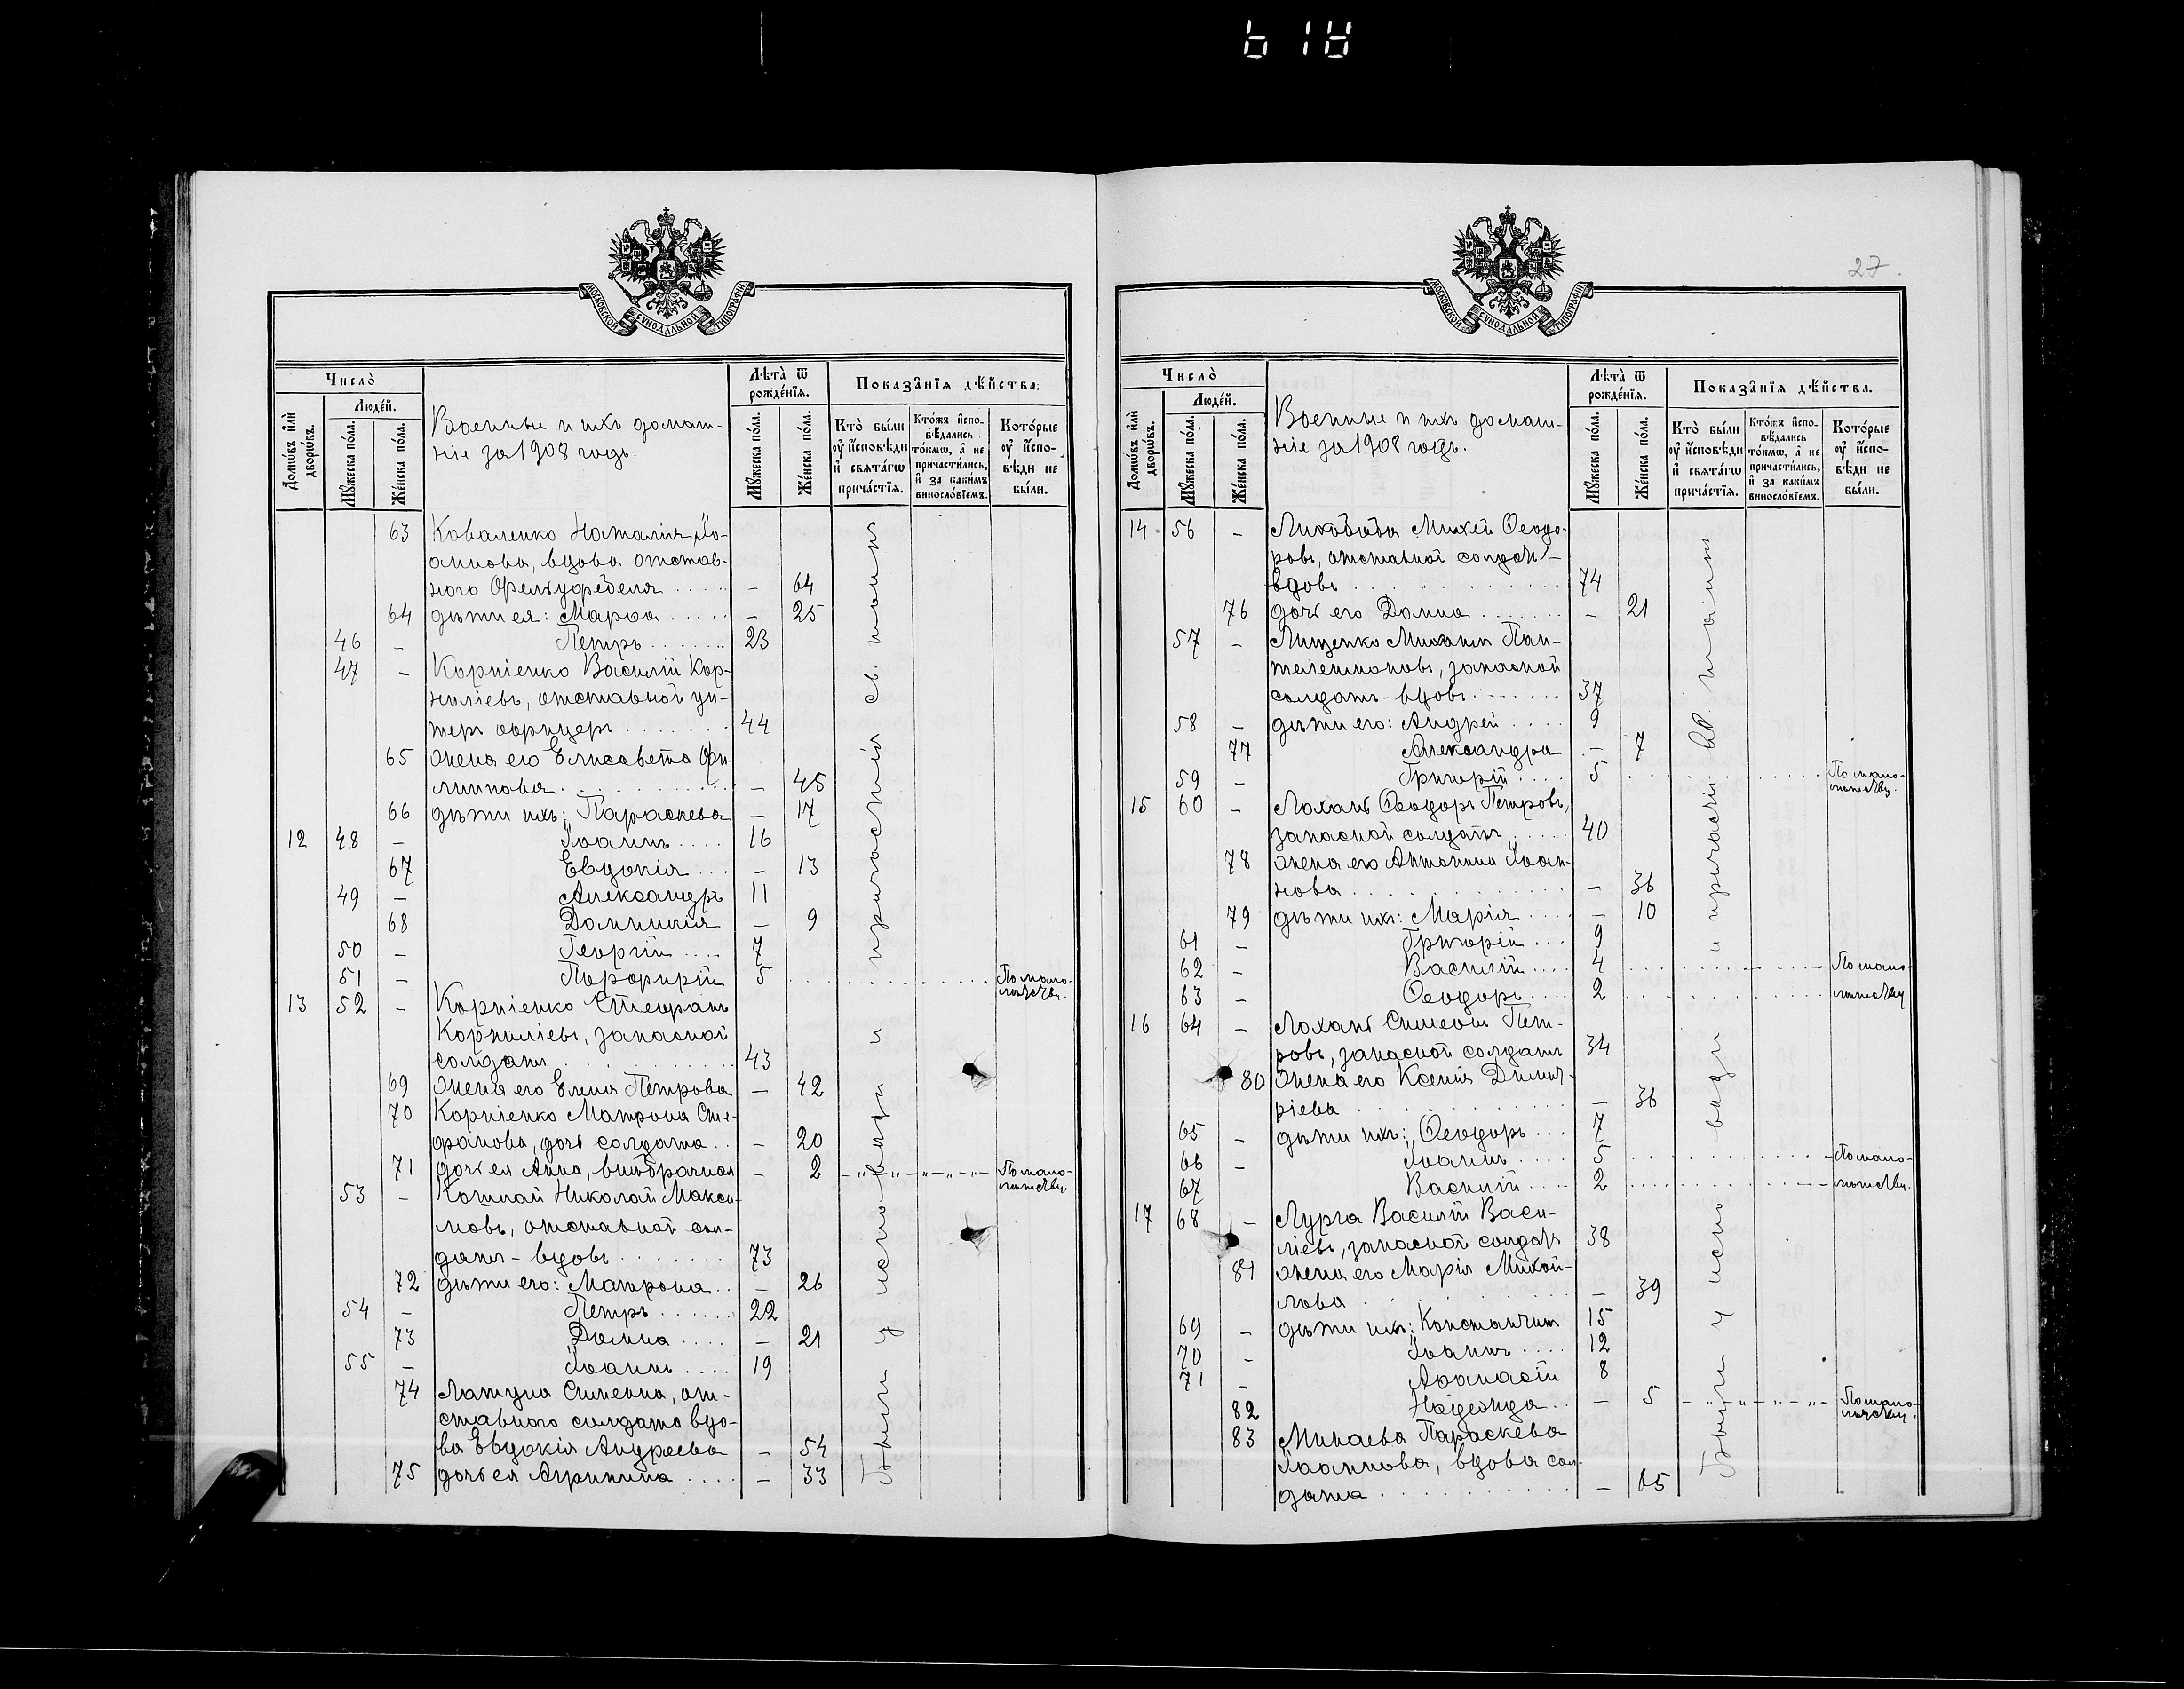 27.
МОСКОВСКОЙ СѴНОДАЛЬНОЙ ТИПОГРАФІИ
Число̀
Домѡ́въ и҆лѝ дворѡ́въ.
Люде́й.
Мꙋ́жеска по́ла.
Же́нска по́ла.
Военные и ихъ домаш-
ніе за 1908 годъ.
Лѣта̀ ѿ рожде́нїѧ.
Мꙋ́жеска по́ла.
Же́нска по́ла.
Показа̑нїѧ дѣ́йства.
Кто̀ бы́ли оу҆ и҆сповѣди и҆ свѧта́гѡ прича́стїѧ.
Кто́жъ и҆спо-вѣдались то́кмѡ, а҆ не причасти́лись, и҆ за каки́мъ винословїемъ.
Кото́рые оу҆ и҆спо-вѣди не бы́ли.
63 Коваленко Наталія Іо-
аннова, вдова отстав-
ного Фельдфебеля - 64
64 дѣти ея: Марѳа - 25
46 - Петръ 23
47 - Корніенко Василій Кор-
ниліевъ, отставной ун-
теръ офицеръ 44
65 жена его Елисавета Фи-
липпова - 45
66 дѣти ихъ: Параскева - 17
12 48 - Іоаннъ 16
67 Евдокія - 13
49 - Александръ 11
68 Домникія - 9
50 - Георгій 7
51 - Порфирій 5 По мало-
лѣтству.
13 52 - Корніенко Стефанъ
Корниліевъ, запасной
солдатъ 43
69 жена его Елена Петрова - 42
70 Корніенко Матрона Сте-
фанова, дочь солдата - 20
71 дочь ея Анна, внѣбрачная - 2 По мало-
лѣтству.
53 - Николай Макси-
мовъ, отставной сол-
датъ - вдовъ 73
72 дѣти его: Матрона - 26
54 - Петръ 22
73 Домна - 21
55 - Іоаннъ 19
74 Симеона, от-
ставного солдата вдо-
ва Евдокія Андреева - 54
75 дочь ея Агрипина - 33
Были у исповѣди и причастія св. таинъ
МОСКОВСКОЙ СѴНОДАЛЬНОЙ ТИПОГРАФІИ
Число̀
Домѡ́въ и҆лѝ дворѡ́въ.
Люде́й.
Мꙋ́жеска по́ла.
Же́нска по́ла.
Военные и ихъ домаш-
ніе за 1908 годъ.
Лѣта̀ ѿ рожде́нїѧ.
Мꙋ́жеска по́ла.
Же́нска по́ла.
Показа̑нїѧ дѣ́йства.
Кто̀ бы́ли оу҆ и҆сповѣди и҆ свѧта́гѡ прича́стїѧ.
Кто́жъ и҆спо-вѣдались то́кмѡ, а҆ не причасти́лись, и҆ за каки́мъ винословїемъ.
Кото́рые оу҆ и҆спо-вѣди не бы́ли.
14 56 - Михей Ѳеодо-
ровъ, отставной солдатъ -
вдовъ 74
76 дочь его Домна - 21
57 - Мищенко Михаилъ Пан-
телеимоновъ, запасной
солдатъ - вдовъ 37
58 - дѣти его: Андрей 9
77 Александра - 7
59 - Григорій 5 По мало-
лѣтству.
15 60 - Лохань Ѳеодоръ Петровъ,
запасной солдатъ 40
78 жена его Антонина Іоан-
нова - 36
79 дѣти ихъ: Марія - 10
61 - Григорій 9
62 - Василій 4 По мало-
63 - Ѳеодоръ 2 лѣтству
16 64 - Лохань Симеонъ Пет-
ровъ, запасной солдатъ 34
80 жена его Ксенія Димит-
ріева - 36
65 - дѣти ихъ: Ѳеодоръ 7
66 - Іоаннъ 5 По мало-
67 Василій 2 лѣтству.
17 68 - Лурга Василій Васи-
ліевъ, запасной солдатъ 38
81 жена его Марія Михай-
лова - 39
69 - дѣти ихъ: Константинъ 15
70 - Іоаннъ 12
71 - Аѳанасій 8
82 Надежда - 5 По мало-
лѣтству.
83 Минаева Параскева
Іоаннова, вдова сол-
дата - 65
Были у исповѣди и причастія св. таинъ